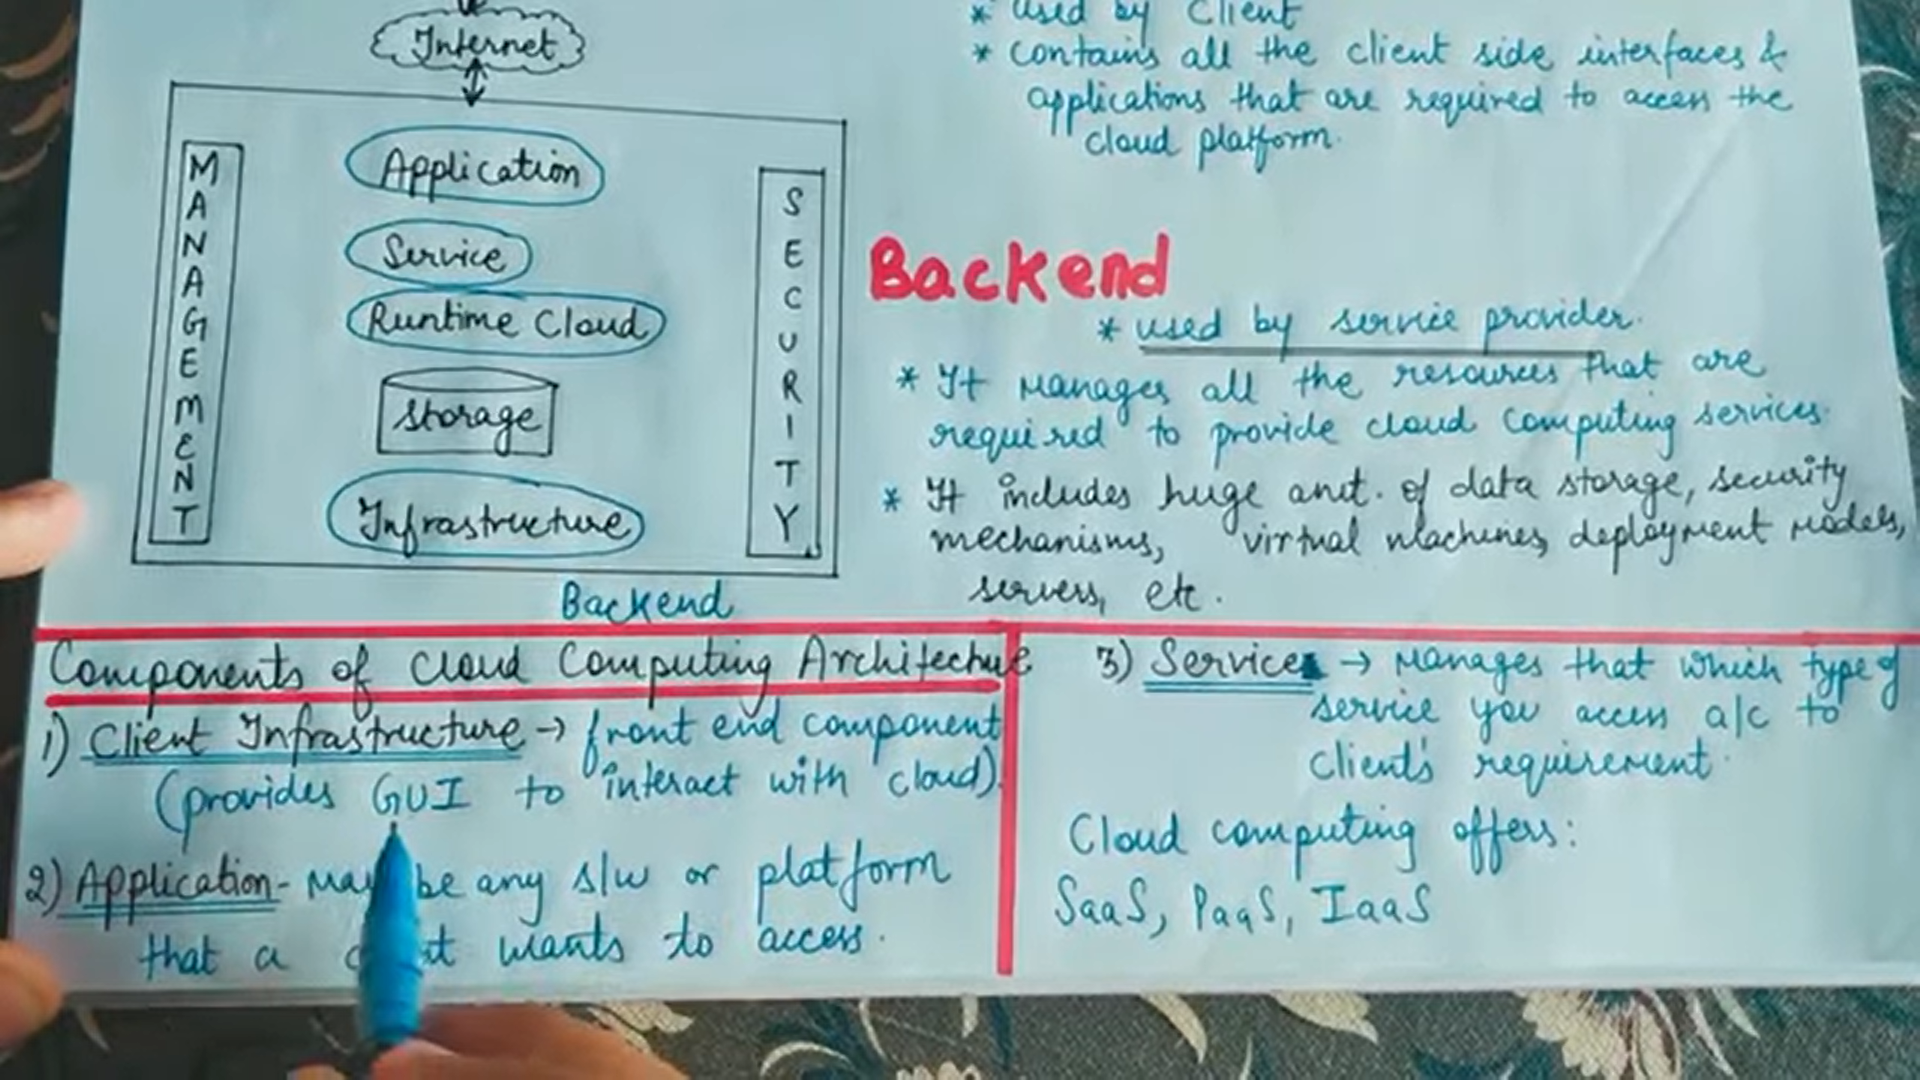 Internet
MANAGEMENT
Application
Service
Runtime Cloud
Storage
Infrastructure
SECURITY
Backend
* used by Client
* contains all the client side interfaces &
applications that are required to access the
cloud platform.
Backend
* used by service provider.
* It manages all the resources that are
required to provide cloud computing services.
* It includes huge amt. of data storage, security
mechanisms, virtual machines, deployment models,
servers, etc.
Components of Cloud Computing Architecture
1) Client Infrastructure → front end component
(provides GUI to interact with cloud).
2) Application - May be any s/w or platform
that a wants to access.
3) Service → Manages that which type of
service you access a/c to
client's requirement.
Cloud computing offers:
SaaS, PaaS, IaaS